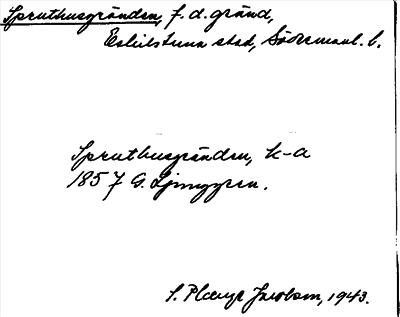 Spruthusgränden, f. d. gränd,
Eskilstuna stad, Södermanl. l.
Spruthusgränden, k-a
1857 G. Ljunggren.
S. Jacobson, 1943.